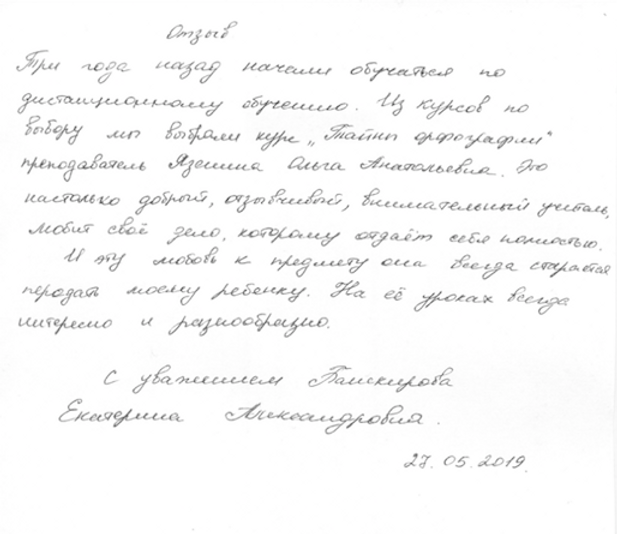 Отзыв
Три года назад начали обучаться по
дистанционному обучению. Из курсов по
выбору мы выбрали курс „Тайны орфографии“
преподаватель Язенина Ольга Анатольевна. Это
настолько добрый, отзывчивый, внимательный учитель,
любит своё дело, которому отдаёт себя полностью.
И эту любовь к предмету она всегда старается
передать моему ребенку. На её уроках всегда
интересно и разнообразно.
С уважением
Екатерина Александровна.
27.05.2019.